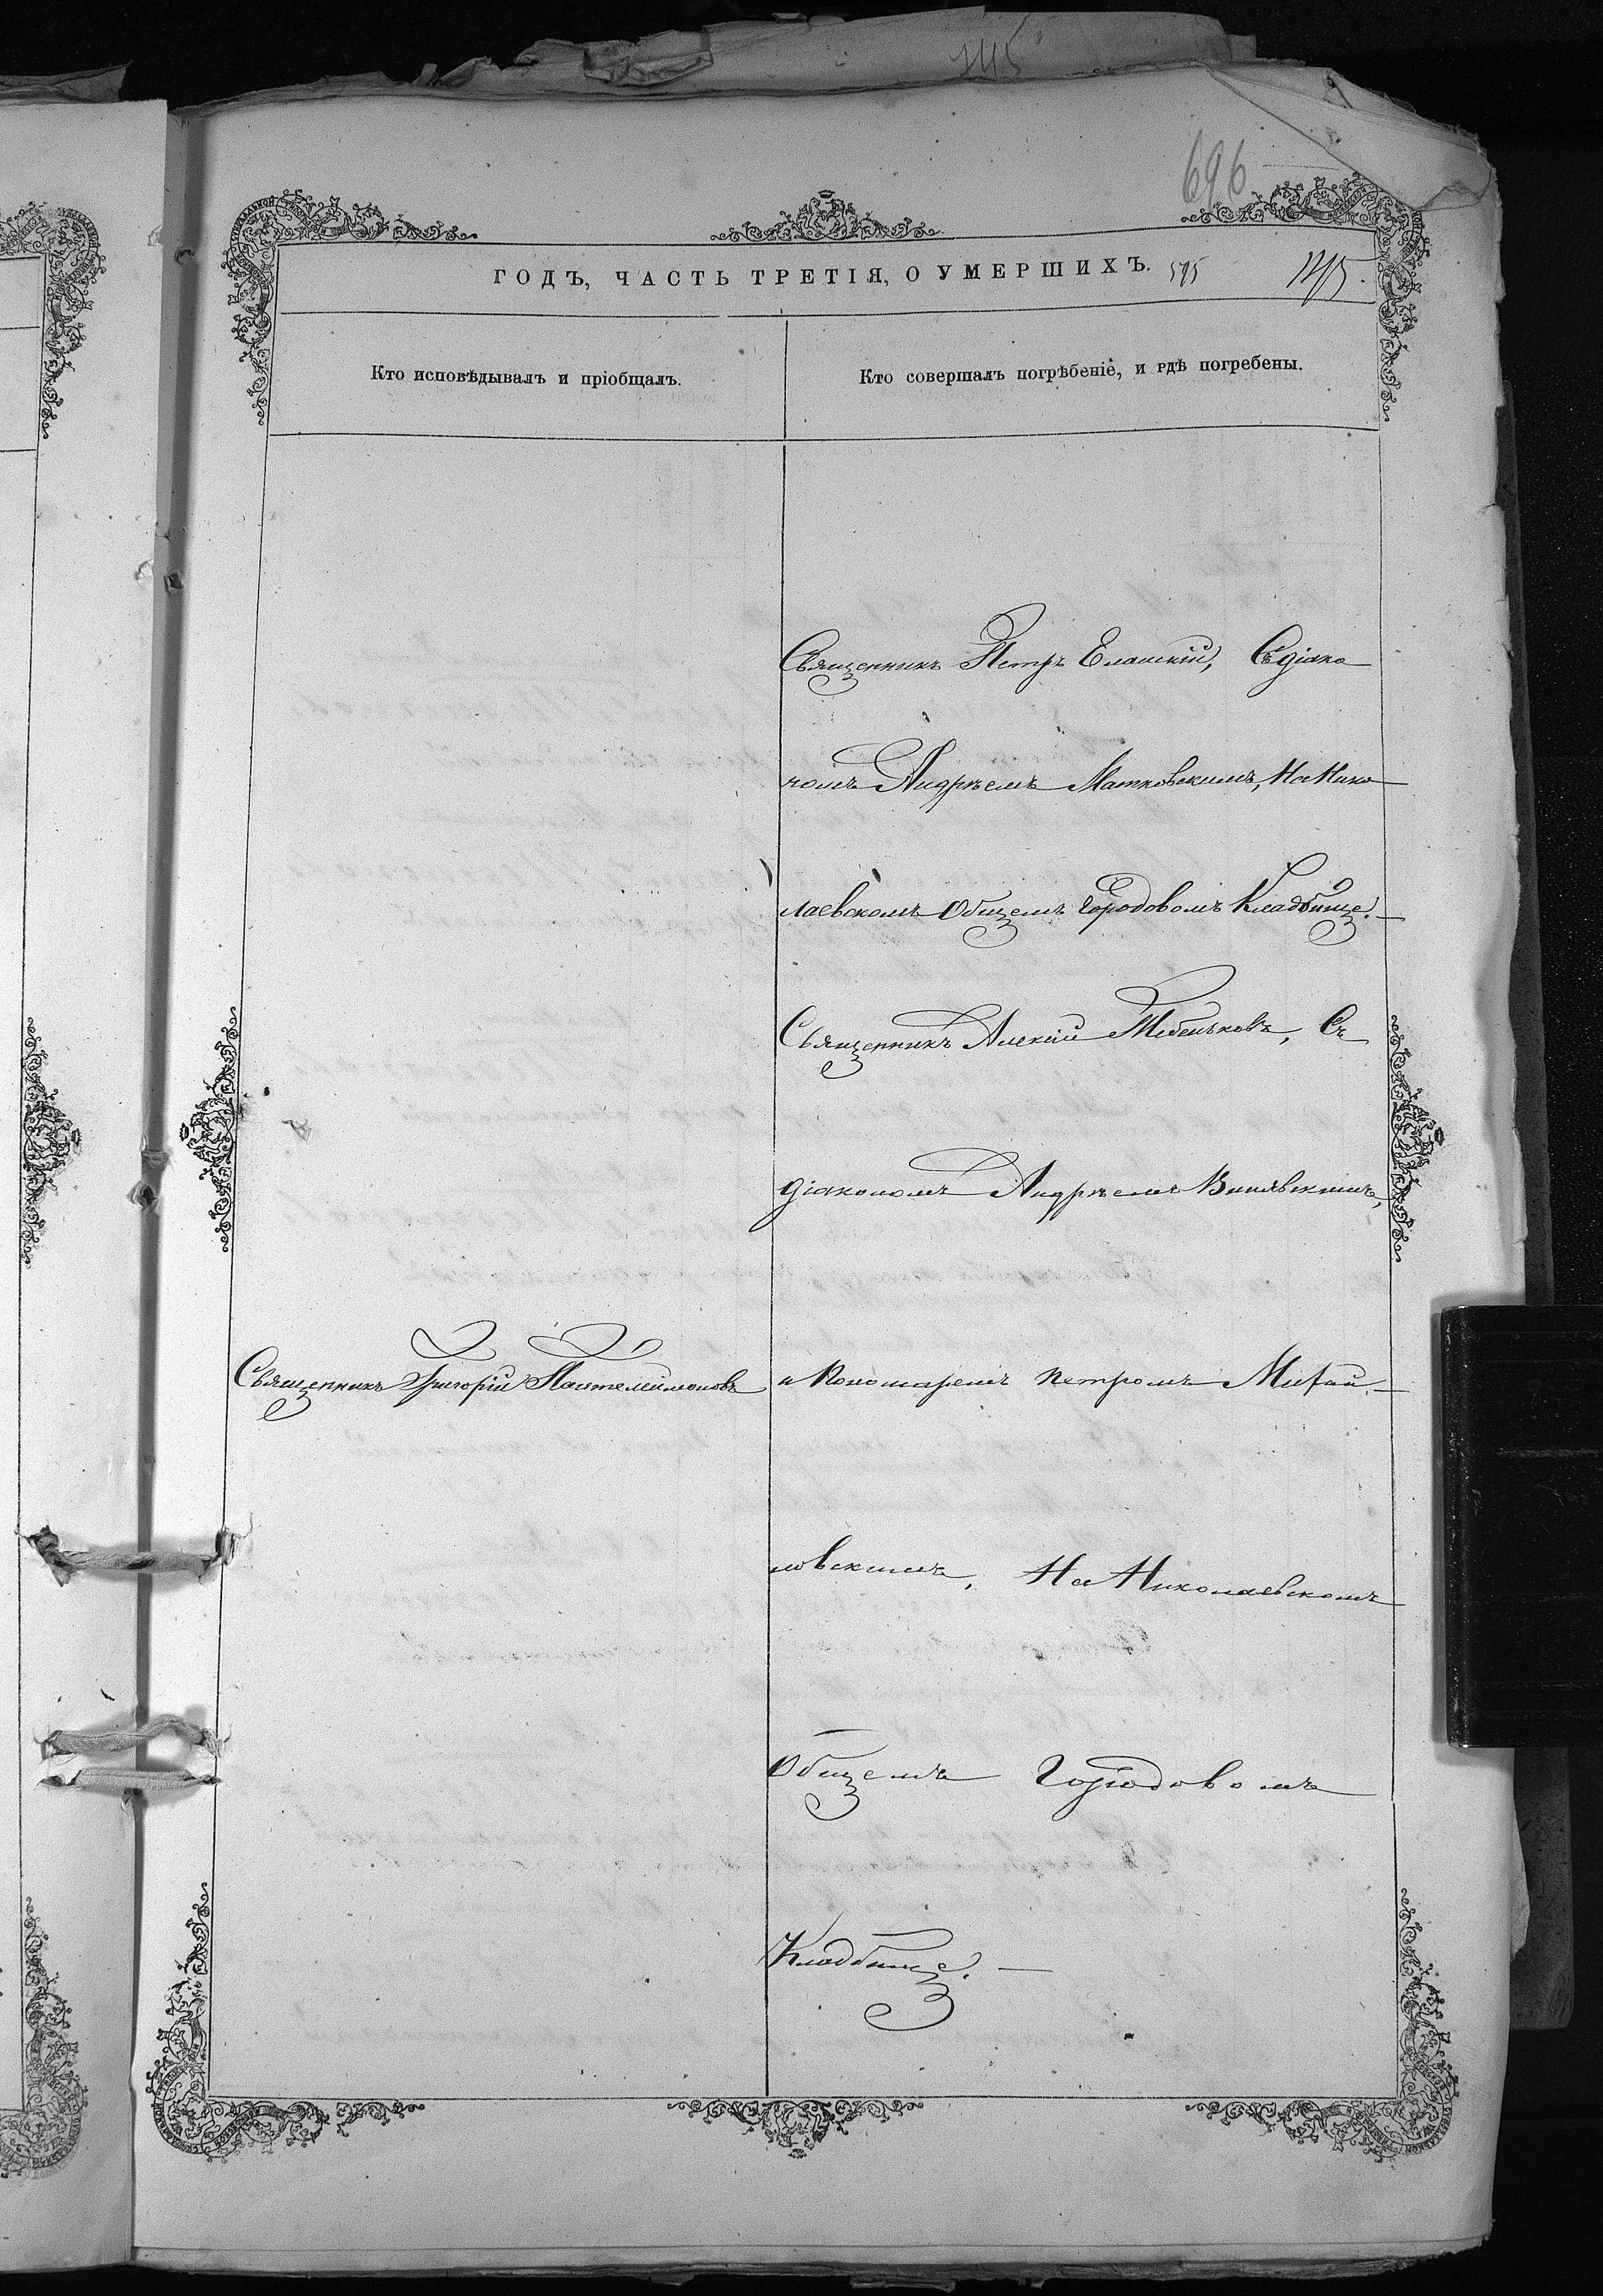 145
696
ГОДЪ, ЧАСТЬ ТРЕТІЯ, О УМЕРШИХЪ. 575 145.
Кто исповѣдывалъ и пріобщалъ.
Кто совершалъ погрѣбеніе, и гдѣ погребены.
Священникъ Петръ Еланскій, Съ діако
номъ Андрѣемъ Матковскимъ, На Нико
лаевскомъ Общемъ Городовомъ Кладбище.
Священникъ Алексій Тебеньковъ, Съ
діакономъ Андрѣемъ
Священникъ Григорій Пантелеймоновъ
и Пономаремъ Петромъ Михай
ловскимъ, На Николаевскомъ
Общемъ Городовомъ
Кладбище.